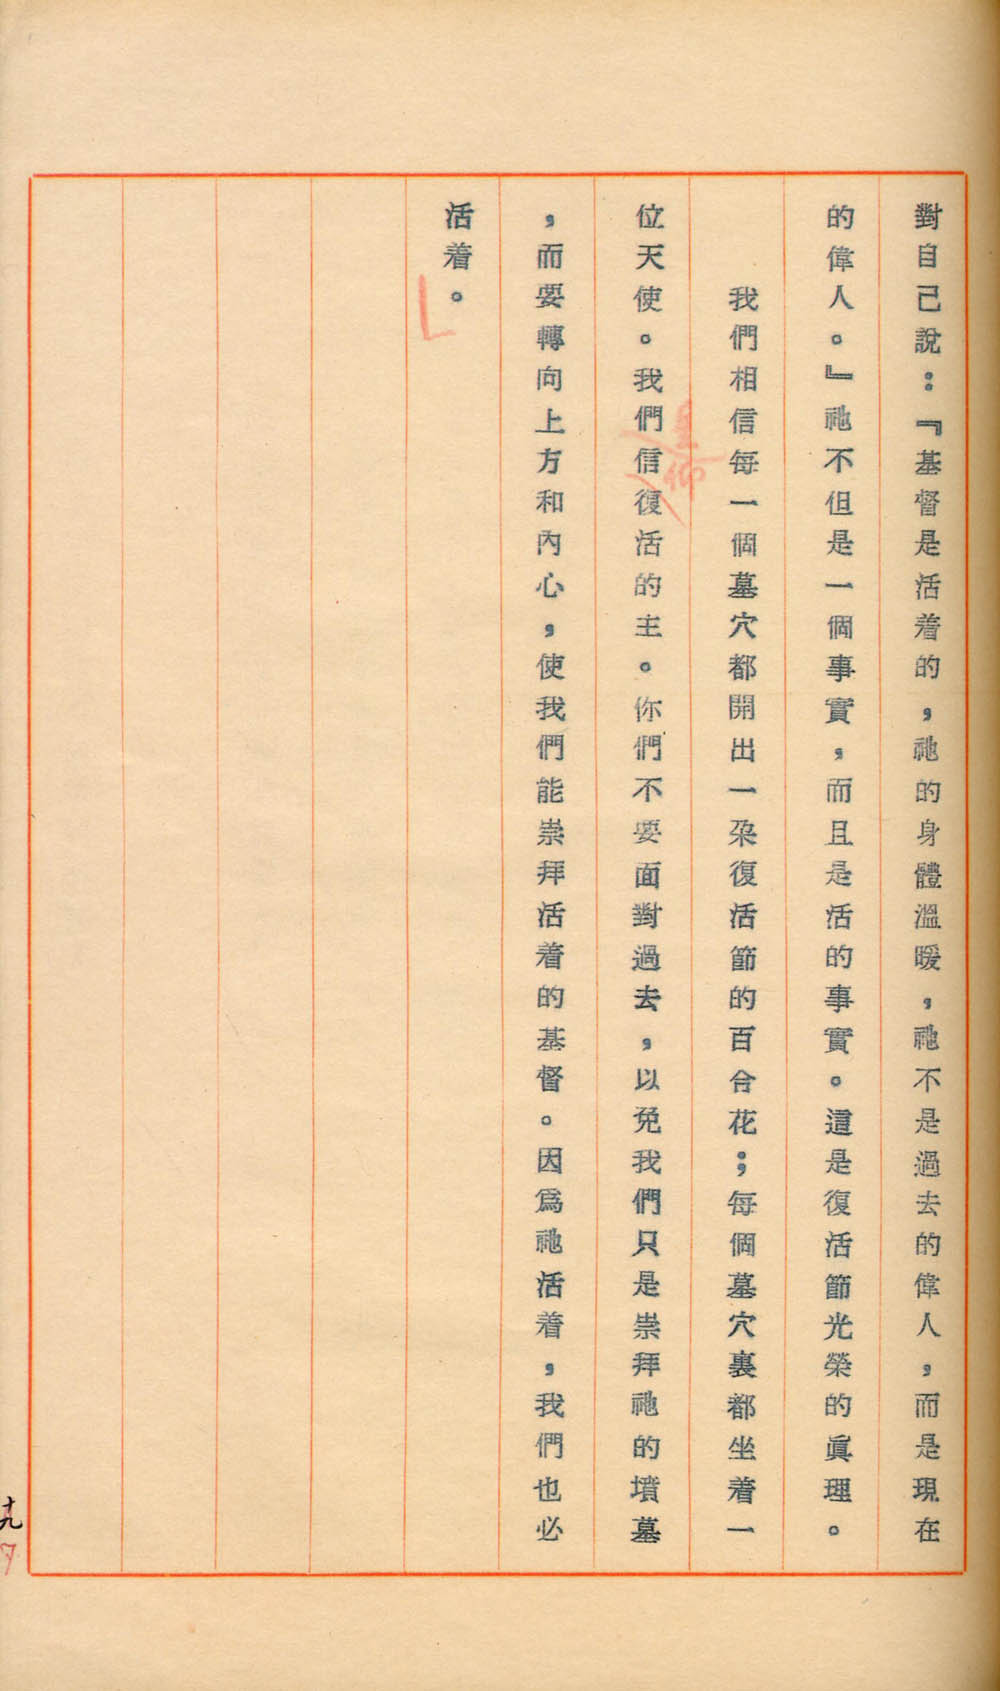 對自己說：『基督是活着的，祂的身體溫暖，祂不是過去的偉人，而是現在
的偉人。』祂不但是一個事實，而且是活的事實。這是復活節光榮的眞理。
我們相信每一個墓穴都開出一朶復活節的百合花；每個墓穴裏都坐着一
位天使。我們信復活的主。你們不要面對過去，以免我們只是崇拜祂的墳墓
，而要轉向上方和內心，使我們能崇拜活着的基督。因爲祂活着，我們也必
活着。
仰
十九
7